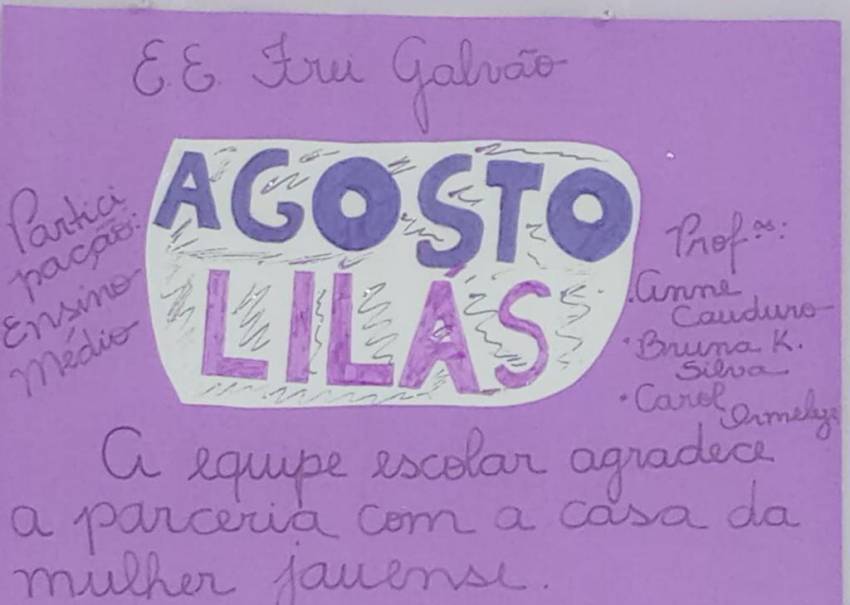 E.E. Frei Galvão
AGOSTO
LILÁS
Partici
pação:
Ensino
Médio
Prof.as:
.Anne
Cauduro
.Bruna K.
Silva
.Carol
A equipe escolar agradece
a parceria com a casa da
mulher jauense.